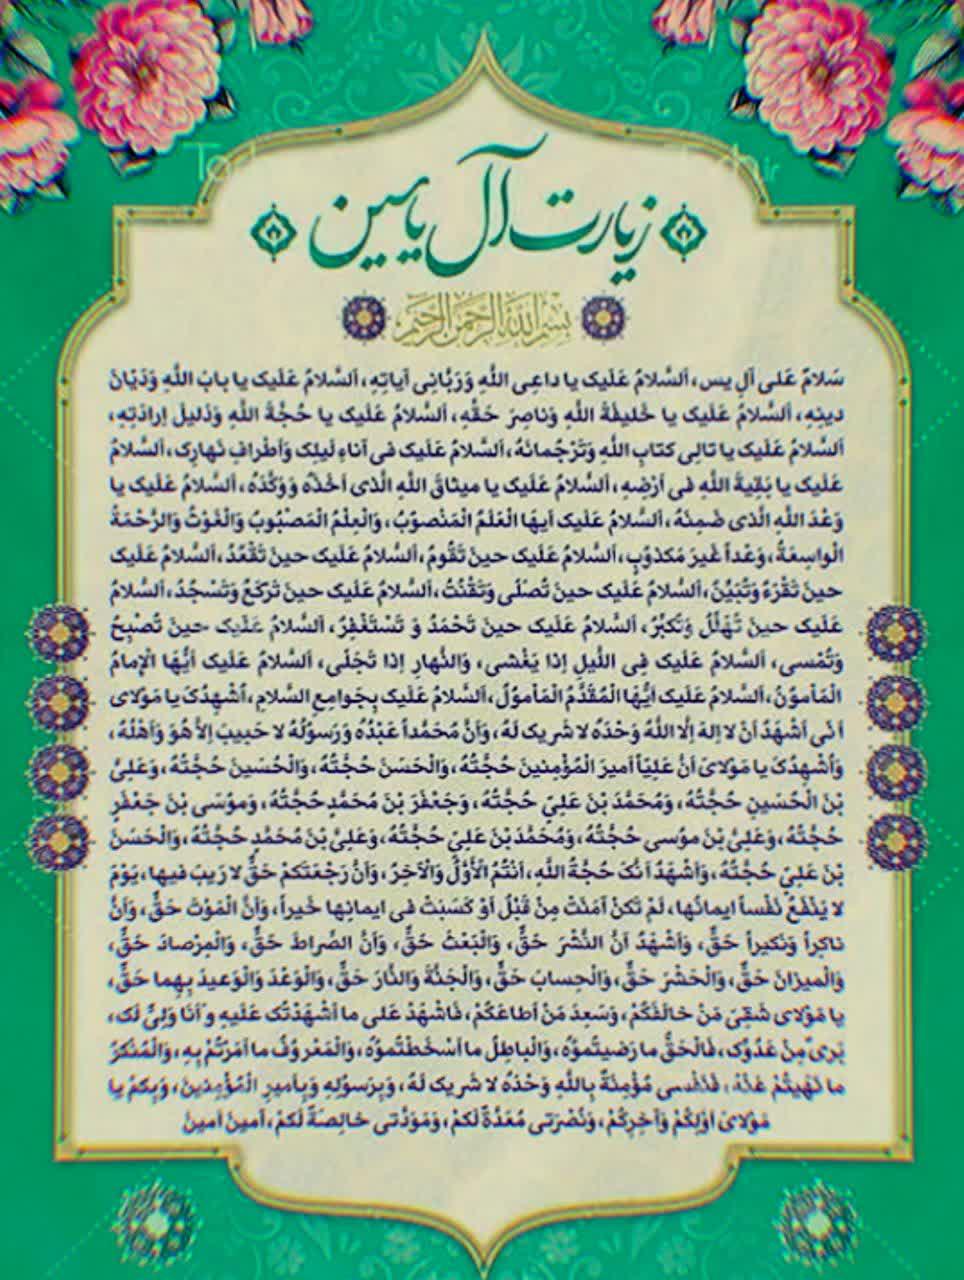 زیارت آل یاسین
بسم الله الرحمن الرحیم
سَلامٌ عَلی آلِ یس، اَلسَّلامُ عَلَیک یا داعِی اللَّهِ وَرَبّانِی آیاتِهِ، اَلسَّلامُ عَلَیک یا بابَ اللَّهِ وَدَیّانَ
دینِهِ، اَلسَّلامُ عَلَیک یا خَلیفَةَ اللَّهِ وَناصِرَ حَقِّهِ، اَلسَّلامُ عَلَیک یا حُجَّةَ اللَّهِ وَدَلیلَ اِرادَتِهِ،
اَلسَّلامُ عَلَیک یا تالِی کتابِ اللَّهِ وَتَرْجُمانَهُ، اَلسَّلامُ عَلَیک فی آناءِ لَیلِک وَاَطْرافِ نَهارِک، اَلسَّلامُ
عَلَیک یا بَقِیةَ اللَّهِ فی اَرْضِهِ، اَلسَّلامُ عَلَیک یا میثاقَ اللَّهِ الَّذی اَخَذَهُ وَوَکَّدَهُ، اَلسَّلامُ عَلَیک یا
وَعْدَ اللَّهِ الَّذی ضَمِنَهُ، اَلسَّلامُ عَلَیک اَیهَا الْعَلَمُ الْمَنْصوُبُ، وَالْعِلْمُ الْمَصْبُوبُ وَالْغَوْثُ وَالرَّحْمَةُ
الْواسِعَةُ، وَعْداً غَیرَ مَکذوُبٍ، اَلسَّلامُ عَلَیک حینَ تَقوُمُ، اَلسَّلامُ عَلَیک حینَ تَقْعُدُ، اَلسَّلامُ عَلَیک
حینَ تَقْرَءُ وَتُبَیِّنُ، اَلسَّلامُ عَلَیک حینَ تُصَلّی وَتَقْنُتُ، اَلسَّلامُ عَلَیک حینَ تَرْکَعُ وَتَسْجُدُ، اَلسَّلامُ
عَلَیک حینَ تُهَلِّلُ وَتُکَبِّرُ، اَلسَّلامُ عَلَیک حینَ تَحْمَدُ وَ تَسْتَغْفِرُ، اَلسَّلامُ عَلَیک حینَ تُصْبِحُ
وَتُمْسی، اَلسَّلامُ عَلَیک فِی اللَّیلِ اِذا یَغْشی، وَالنَّهارِ اِذا تَجَلّی، اَلسَّلامُ عَلَیک اَیُّهَا الْاِمامُ
الْمَأموُنُ، اَلسَّلامُ عَلَیک اَیُّهَا الْمُقَدَّمُ الْمَأموُلُ، اَلسَّلامُ عَلَیک بِجَوامِعِ السَّلامِ، اُشْهِدُک یا مَوْلای
اَنّی اَشْهَدُ اَنْ لا اِلهَ اِلَّا اللَّهُ وَحْدَهُ لا شَریک لَهُ، وَاَنَّ مُحَمَّداً عَبْدُهُ وَرَسوُلُهُ لا حَبیبَ اِلاَّ هُوَ وَاَهْلُهُ،
وَاُشْهِدُک یا مَوْلایَ اَنَّ عَلِیّاً اَمیرَ الْمُؤْمِنینَ حُجَّتُهُ، وَالْحَسَنَ حُجَّتُهُ، وَالْحُسَینَ حُجَّتُهُ، وَعَلِیَّ
بْنَ الْحُسَینِ حُجَّتُهُ، وَمُحَمَّدَ بْنَ عَلِیٍّ حُجَّتُهُ، وَجَعْفَرَ بْنَ مُحَمَّدٍ حُجَّتُهُ، وَموُسَی بْنَ جَعْفَرٍ
حُجَّتُهُ، وَعَلِیَّ بْنَ موُسی حُجَّتُهُ، وَمُحَمَّدَ بْنَ عَلِیٍّ حُجَّتُهُ، وَعَلِیَّ بْنَ مُحَمَّدٍ حُجَّتُهُ، وَالْحَسَنَ
بْنَ عَلِیٍّ حُجَّتُهُ، وَاَشْهَدُ اَنَّک حُجَّةُ اللَّهِ، اَنْتُمُ الْاَوَّلُ وَالْآخِرُ، وَاَنَّ رَجْعَتَکمْ حَقٌّ لا رَیبَ فیها، یَوْمَ
لا یَنْفَعُ نَفْساً ایمانُها، لَمْ تَکنْ آمَنَتْ مِنْ قَبْلُ اَوْ کَسَبَتْ فی ایمانِها خَیراً، وَاَنَّ الْمَوْتَ حَقٌّ، وَاَنَّ
ناکِراً وَنَکیراً حَقٌّ، وَاَشْهَدُ اَنَّ النَّشْرَ حَقٌّ، وَالْبَعْثَ حَقٌّ، وَاَنَّ الصِّراطَ حَقٌّ، وَالْمِرْصادَ حَقٌّ،
وَالْمیزانَ حَقٌّ، وَالْحَشْرَ حَقٌّ، وَالْحِسابَ حَقٌّ، وَالْجَنَّةَ وَالنّارَ حَقٌّ، وَالْوَعْدَ وَالْوَعیدَ بِهِما حَقٌّ،
یا مَوْلای شَقِیَ مَنْ خالَفَکُمْ، وَسَعِدَ مَنْ اَطاعَکُمْ، فَاشْهَدْ عَلی ما اَشْهَدْتُک عَلَیهِ وَاَنَا وَلِیٌّ لَک،
بَریءٌ مِنْ عَدُوِّک، فَالْحَقُّ ما رَضیتُموُهُ، وَالْباطِلُ ما اَسْخَطْتُموُهُ، وَالْمَعْروُفُ ما اَمَرْتُمْ بِهِ، وَالْمُنْکَرُ
ما نَهَیتُمْ عَنْهُ، فَنَفْسی مُؤْمِنَةٌ بِاللَّهِ وَحْدَهُ لا شَریک لَهُ، وَبِرَسوُلِهِ وَبِاَمیرِ الْمُؤْمِنینَ، وَبِکمْ یا
مَوْلایَ اَوَّلِکُمْ وَآخِرِکُمْ، وَنُصْرَتی مُعَدَّةٌ لَکمْ، وَمَوَدَّتی خالِصَةٌ لَکمْ، آمینَ آمینَ